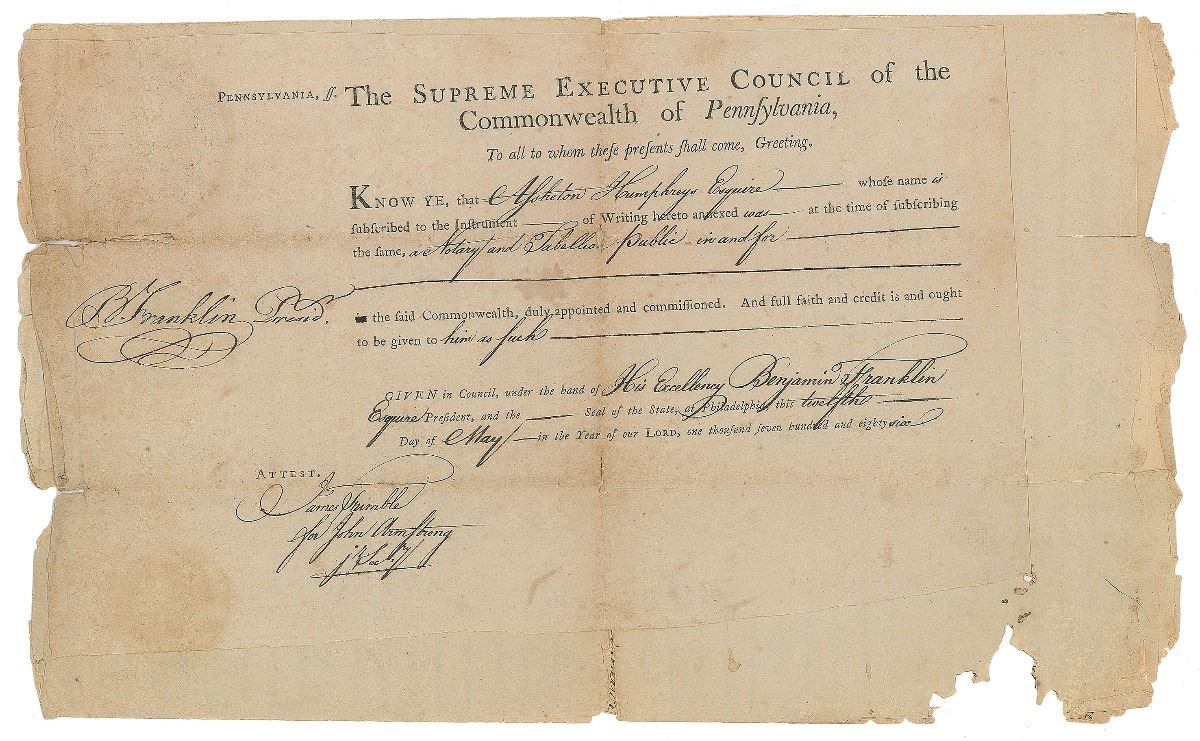 PENNSYLVANIA, ſſ. The SUPREME EXECUTIVE COUNCIL of the
Commonwealth of Pennſylvania,
To all to whom theſe preſents ſhall come, Greeting.
KNOW YE, that Aſsheton Humphreys Esquire whoſe name is
ſubſcribed to the Inſtrument of Writing hereto annexed was at the time of ſubſcribing
the ſame, a Notary and Tabellio Public in and for
B Franklin Presid.
the ſaid Commonwealth, duly appointed and commiſſioned. And full faith and credit is and ought
to be given to him as ſuch
GIVEN in Council, under the hand of His Excellency Benjamin Franklin
Esquire Preſident, and the Seal of the State, at Philadelphia, this twelfth
Day of May in the Year of our LORD, one thouſand ſeven hundred and eighty six
ATTEST.
James Trimble
for John Armstrong
jr. Sec.ry